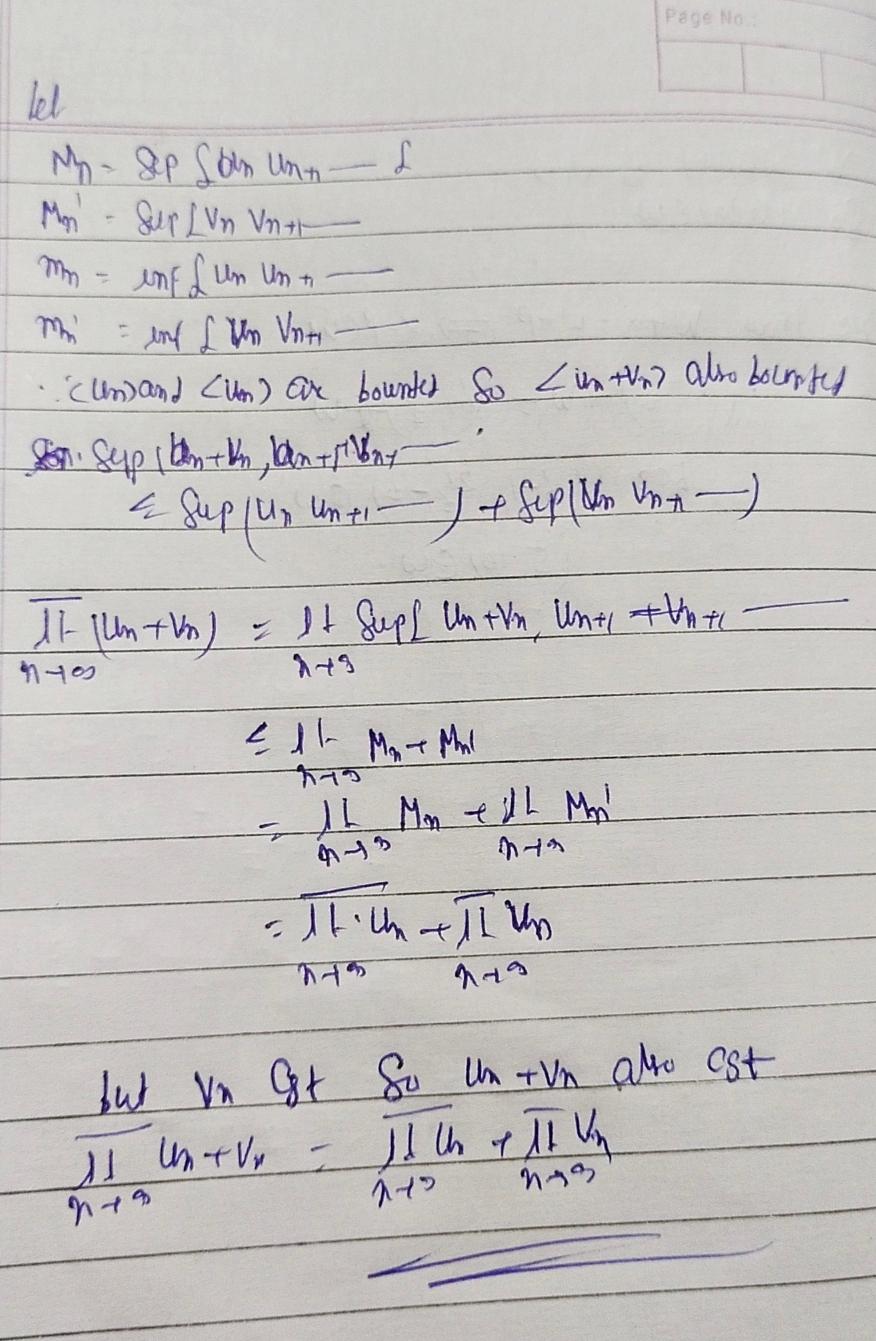 Page No.:
let
Mn = Sup { Un Un+1 —
Mn' = Sup { Vn Vn+1 —
mn = inf { Un Un+1 —
mn' = inf { Vn Vn+1 —
<Un> and <Un> are bounted So <Un+Vn> also bounted
Sup (Un+Vn, Un+1+Vn+1 —
≤ Sup (Un Un+1 —) + Sup (Vn Vn+1 —)
l̅t̅ (Un+Vn) = lt Sup { Un+Vn, Un+1 + Vn+1 —
n→∞ n→∞
≤ lt Mn + Mn'
n→∞
= lt Mn + lt Mn'
n→∞ n→∞
= l̅t̅ Un + l̅t̅ Vn
n→∞ n→∞
but Vn Cgt So Un+Vn also cgt
l̅t̅ Un+Vn = l̅t̅ Un + l̅t̅ Vn
n→∞ n→∞ n→∞